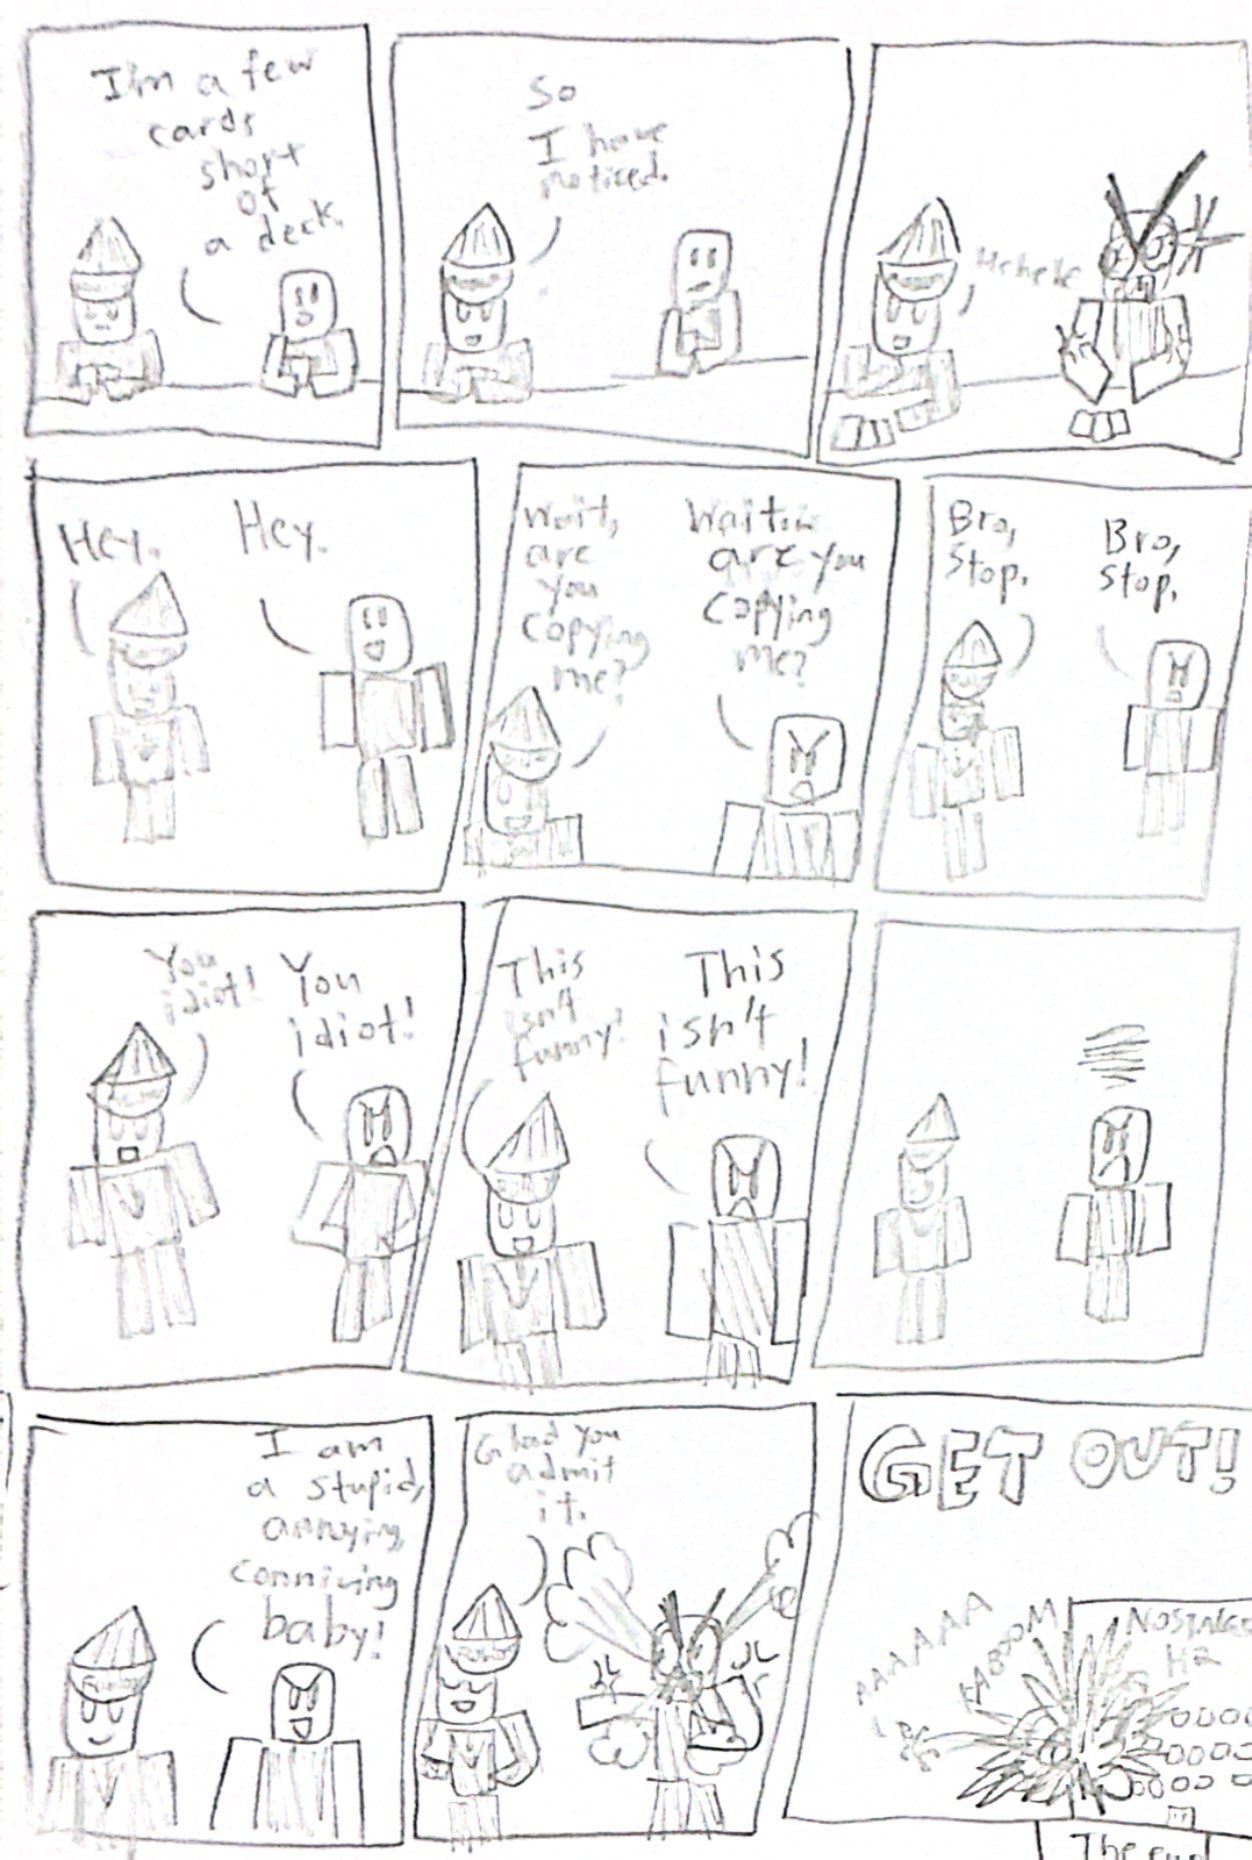 I'm a few
cards
short
of
a deck.
So
I have
noticed.
Hehehe
Hey.
Hey.
Wait,
are
you
copying
me?
Wait...
are you
copying
me?
Bro,
stop.
Bro,
stop.
You
idiot!
You
idiot!
This
isn't
funny!
This
isn't
funny!
I am
a stupid,
annoying,
conniving
baby!
Glad you
admit
it.
GET OUT!
AAAAAAA
KABOOM
HQ
The end